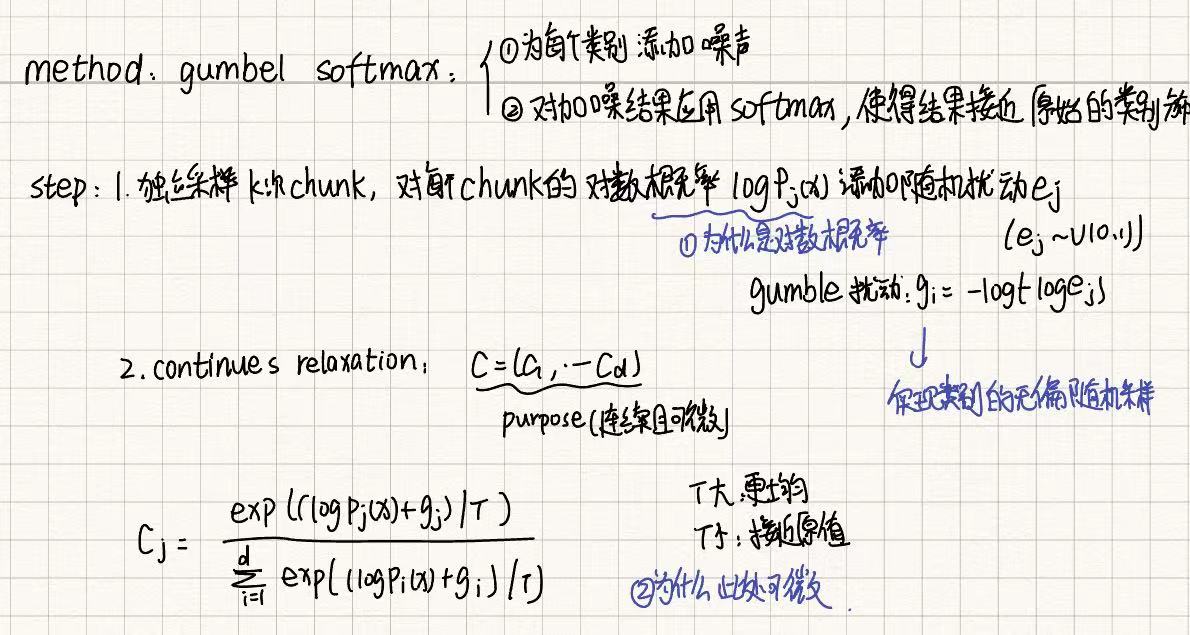 method: gumbel softmax:
①为每个类别添加噪声
②对加噪结果应用softmax,使得结果接近原始的类别
step: 1. 独立采样k次chunk, 对每个chunk的对数概率 log Pj(x) 添加随机扰动 ej
①为什么是对数概率
(ej ~ U(0,1))
gumble扰动: gi = -log(-log ej)
2. continues relaxation: C = (C1, ... Cd)
purpose(连续且可微)
实现类别的无偏随机采样
Cj = exp((log Pj(x) + gj) / T) / Σ_{i=1}^{d} exp((log Pi(x) + gi) / T)
T大:更均匀
T小:接近原值
②为什么此处可微